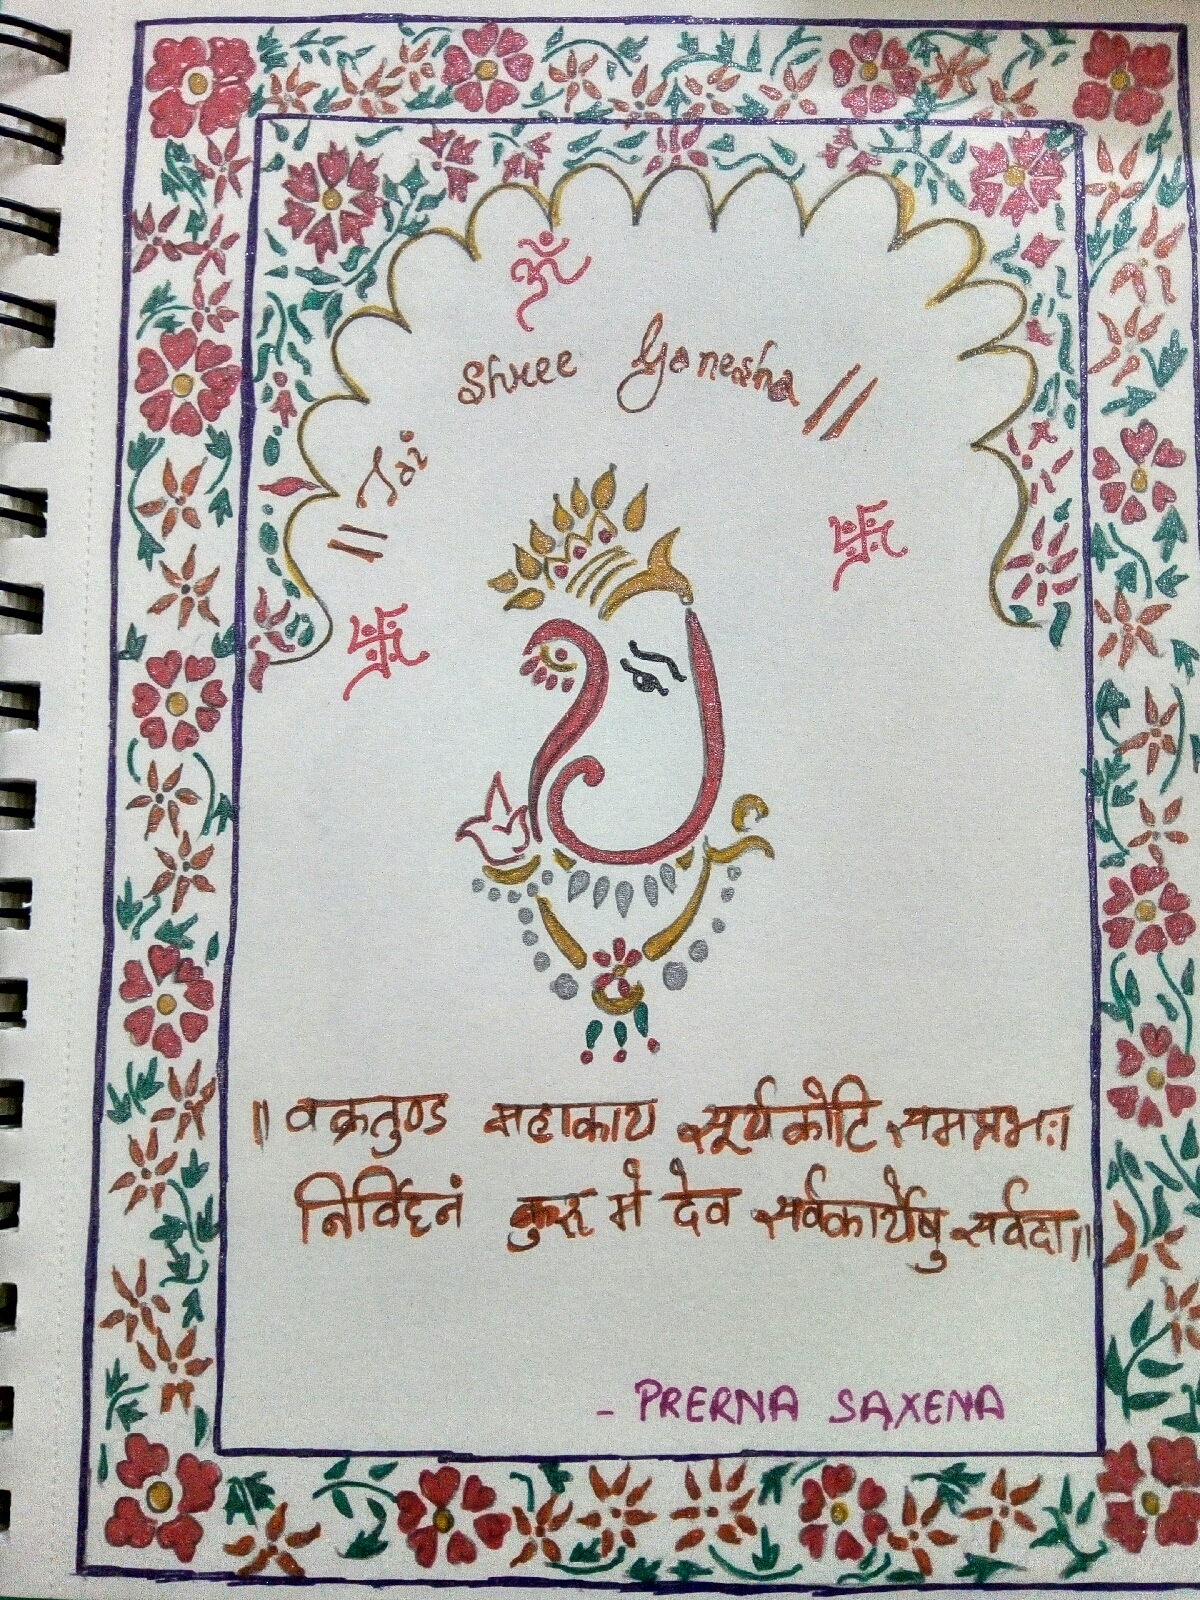 ॐ
|| Jai Shree Ganesha ||
॥ वक्रतुण्ड महाकाय सूर्यकोटि समप्रभः।
निर्विघ्नं कुरू मे देव सर्वकार्येषु सर्वदा॥
- PRERNA SAXENA